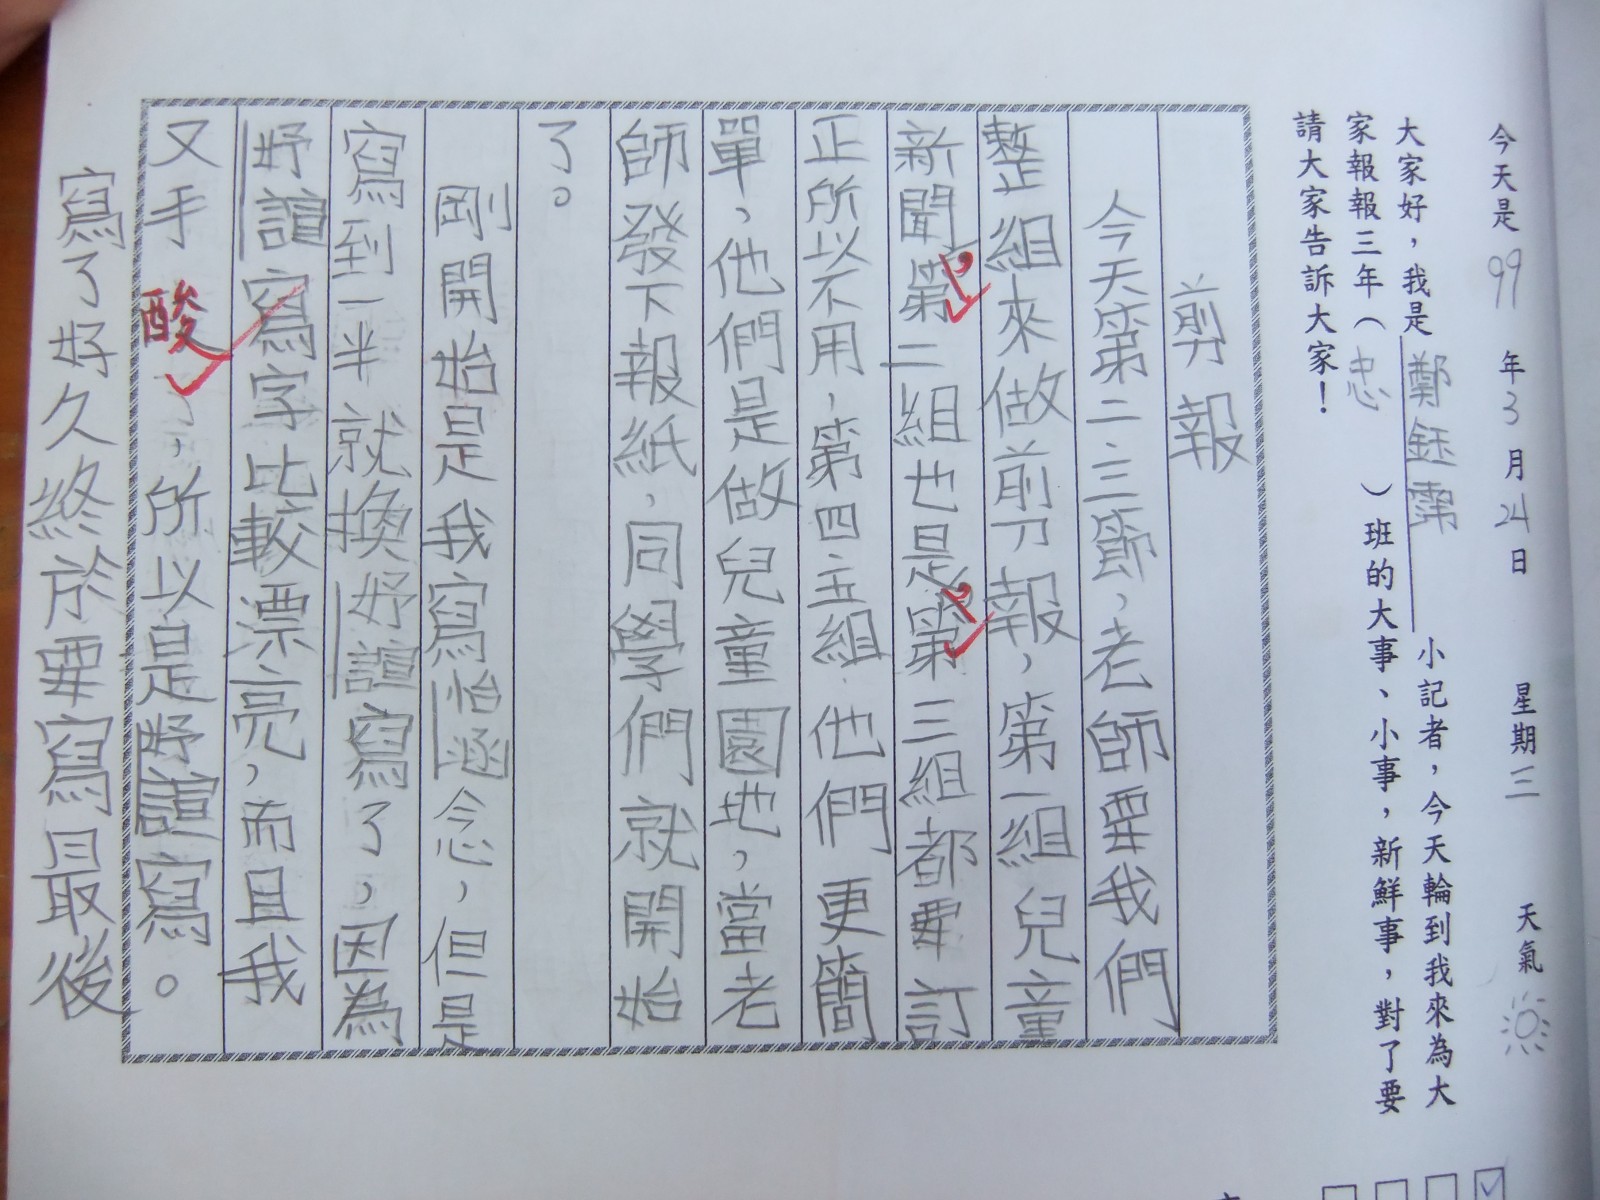 今天是99年3月24日 星期三 天氣
大家好，我是鄭鈺霈小記者，今天輪到我來為大
家報報三年（忠）班的大事、小事，新鮮事，對了要
請大家告訴大家！
剪報
今天第二、三節，老師要我們
整組來做剪報，第一組兒童
新聞第二組也是第三組都要訂
正所以不用，第四五組他們更簡
單，他們是做兒童園地，當老
師發下報紙，同學們就開始
了。
剛開始是我寫怡涵念，但是
寫到一半就換妤諠寫了，因為
妤諠寫字比較漂亮，而且我
又手酸了，所以是妤諠寫。
寫了好久終於要寫最後